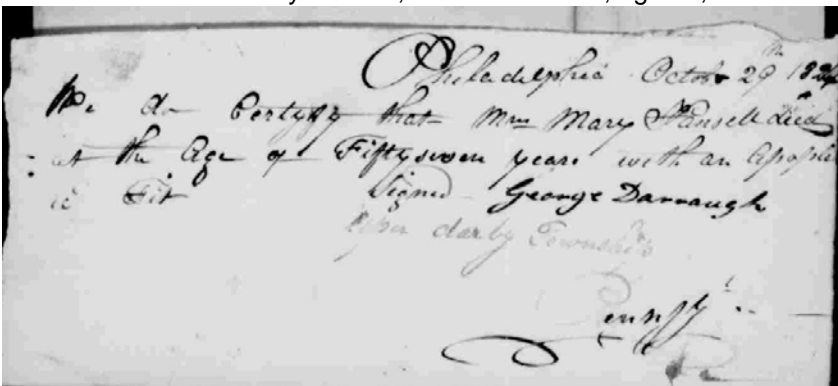 Philadelphia October 29th 1824
We do Certyfy that Mrs Mary Hansell died
at the Age of Fifty seven years with an Apoplec
ic Fit Signed George Darraugh
Upper darby Township
Pennsy